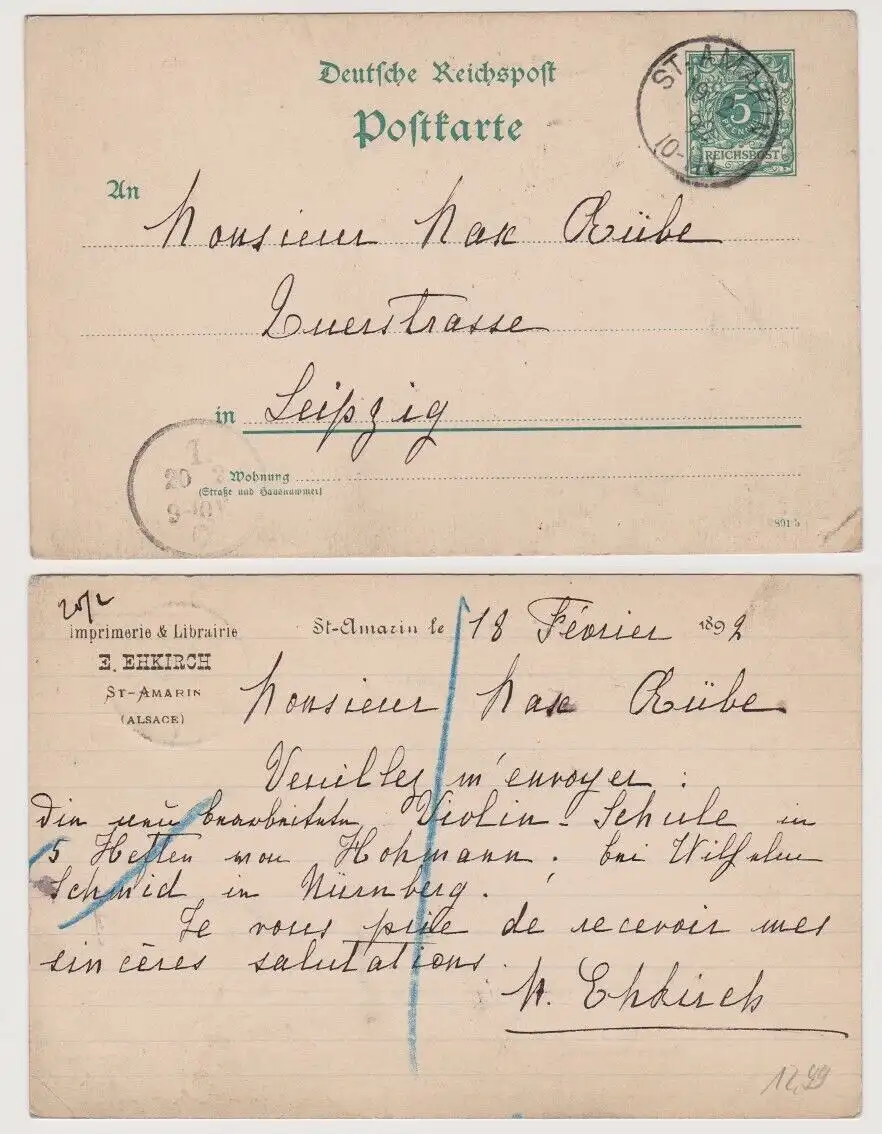 Deutsche Reichspost
Postkarte
ST-AMARIN
19 2
92
10-11V
5
PFENNIG
REICHSPOST
An Monsieur Max Rübe
Querstrasse
in Leipzig
Wohnung
(Straße und Hausnummer)
1.
20 2
9-10V
891 5
20/2
Imprimerie & Librairie
E. EHKIRCH
ST-AMARIN
(ALSACE)
St-Amarin le 18 Février 1892
Monsieur Max Rübe
Veuillez m'envoyer :
Die neu bearbeitete Violin-Schule in
5 Heften von Hohmann. bei Wilhelm
Schmid in Nürnberg.
Je vous prie de recevoir mes
sincères salutations.
M. Ehkirch
12,99